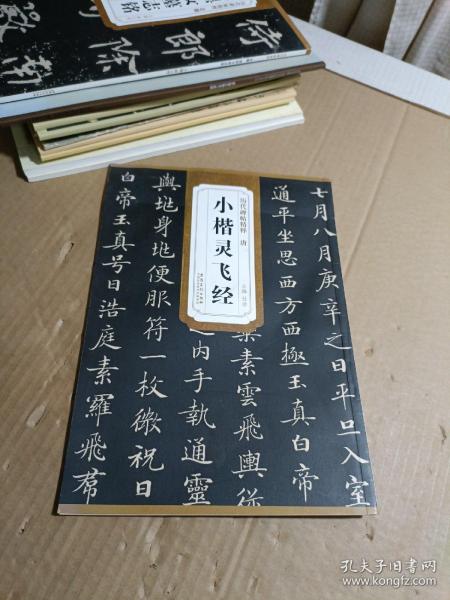 历代碑帖精粹 唐
小楷灵飞经
七月八月庚辛之日平旦入室
通平坐思西方西極玉真白帝
素雲飛輿從
之内手執通靈
與地身地便服符一枚微祝日
白帝玉真号日浩庭素羅飛帬
墓志铭
孔夫子旧书网
www.kongfz.com